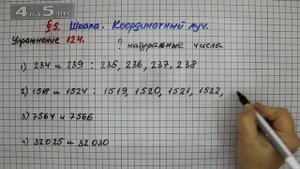 4AS5.RU
§5. Шкала. Координатный луч.
Упражнение 124.
? натуральные числа
1) 234 и 239 : 235, 236, 237, 238
2) 1518 и 1524 : 1519, 1520, 1521, 1522,
3) 7564 и 7566
4) 32025 и 32030